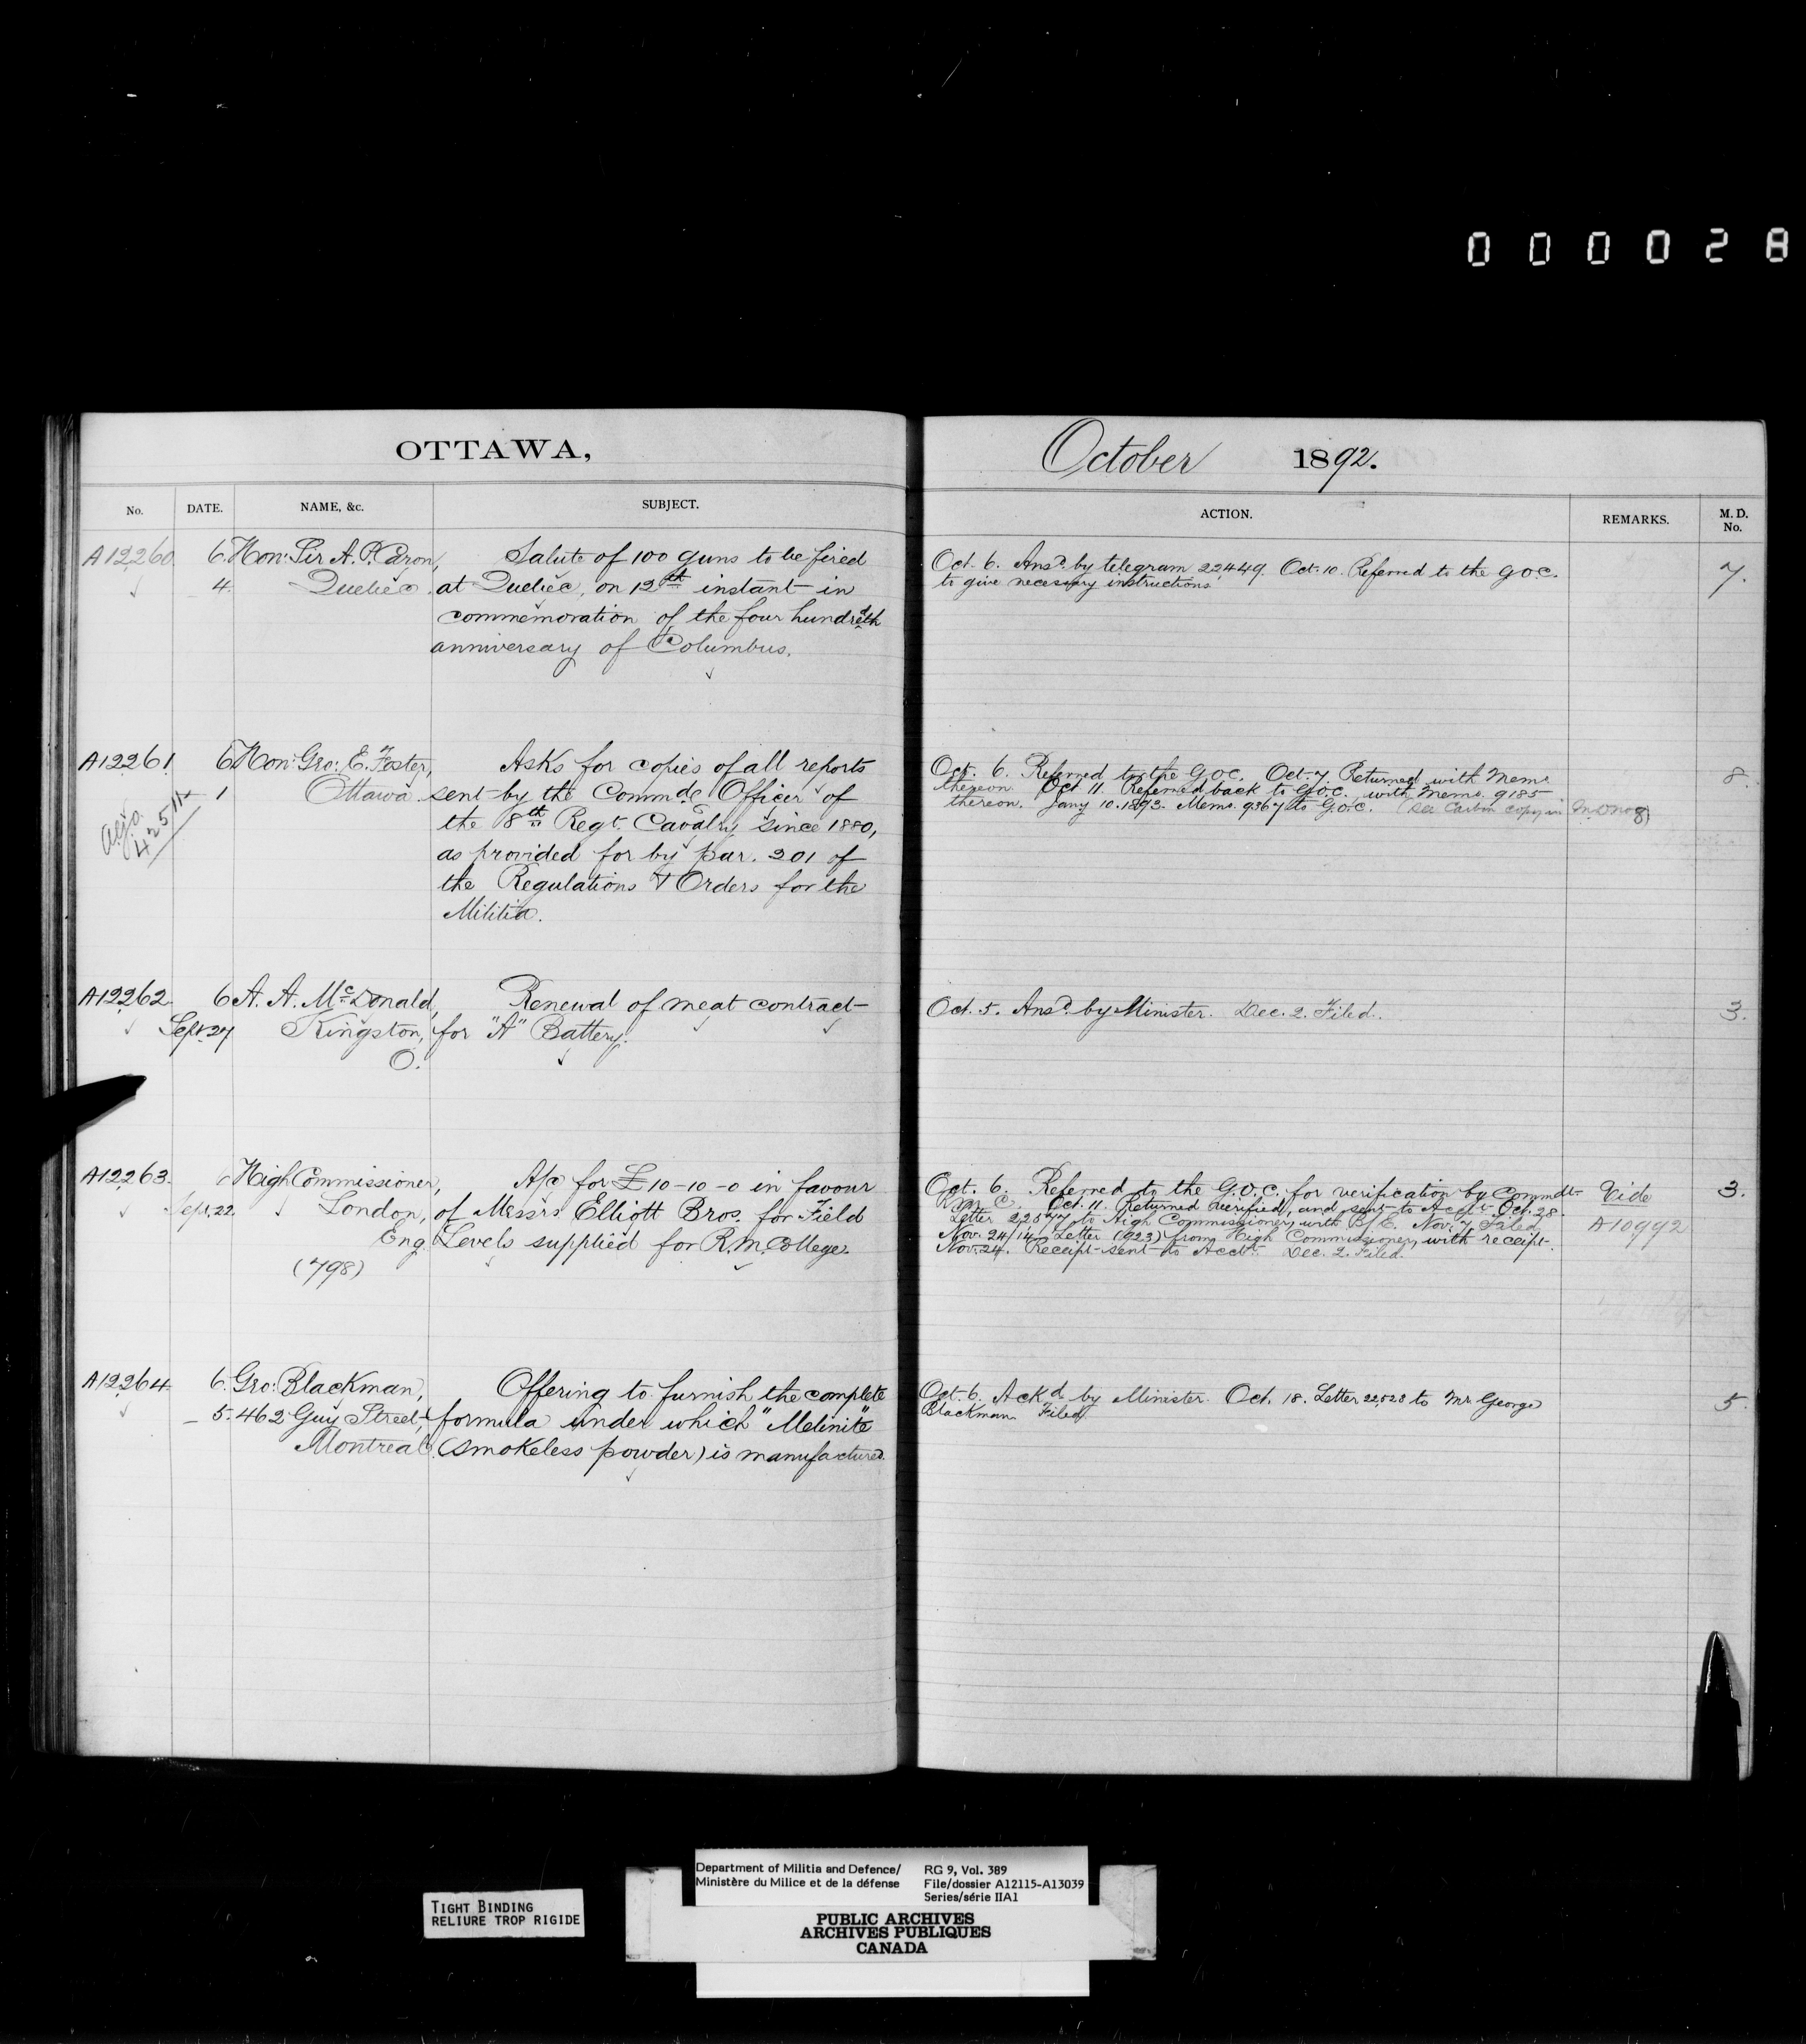 000028
OTTAWA,
No. DATE. NAME, &c. SUBJECT.
A12260. 6. Hon: Sir A. P. Caron, Salute of 100 guns to be fired
4. Quebec. at Quebec, on 12th instant in
commemoration of the four hundredth
anniversary of Columbus.
A12261. 6 Hon: Geo: E. Foster, Asks for copies of all reports
1 Ottawa. sent by the Commdg Officer of
the 8th Regt. Cavalry since 1880,
as provided for by par. 301 of
the Regulations & Orders for the
Militia.
A.G.O.
42511
A12262. 6 A. A. McDonald, Renewal of meat contract
Sept. 27 Kingston, for "A" Battery.
O.
A12263. 6 High Commissioner, A/c for £10-10-0 in favour
Sept. 22. London, of Messrs Elliott Bros. for Field
Eng. Levels supplied for R.M. College.
(798)
A12264. 6. Geo: Blackman, Offering to furnish the complete
5. 462 Guy Street, formula under which "Melinite"
Montreal. (smokeless powder) is manufactured.
October 1892.
ACTION. REMARKS. M. D. No.
Oct. 6. Ansd. by telegram 22449. Oct. 10. Referred to the G.O.C. 7.
to give necessary instructions.
Oct. 6. Referred to the G.O.C. Oct. 7. Returned with Memo 8
thereon. Oct 11. Referred back to G.O.C. with Memo. 9185
thereon. Jany 10. 1893. Memo. 9367 to G.O.C. (See Carbon copy in M.D No 8)
Oct. 5. Ansd. by Minister. Dec. 2. Filed. 3.
Oct. 6. Referred to the G.O.C. for verification by Commdt. Vide 3.
R.M.C. Oct. 11. Returned verified, and sent to Acct. Oct. 28.
Letter 22577 to High Commissioner, with B/E. Nov. 7 Filed. A10992
Nov. 24/14, Letter (923) from High Commissioner, with receipt.
Nov. 24. Receipt sent to Acct. Dec. 2. Filed.
Oct. 6. Ackd by Minister. Oct. 18. Letter 22,528 to Mr. George 5.
Blackman. Filed
TIGHT BINDING
RELIURE TROP RIGIDE
Department of Militia and Defence/
Ministère du Milice et de la défense
RG 9, Vol. 389
File/dossier A12115-A13039
Series/série IIA1
PUBLIC ARCHIVES
ARCHIVES PUBLIQUES
CANADA